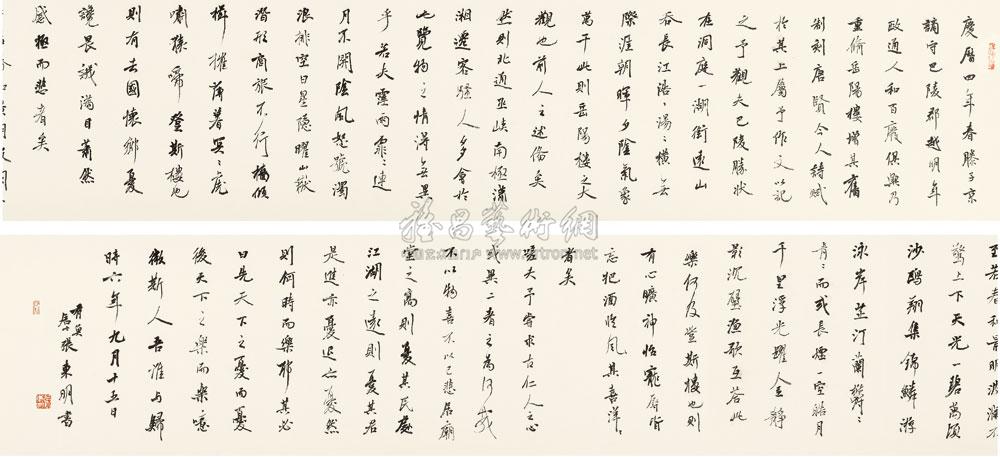 慶曆四年春滕子京
謫守巴陵郡越明年
政通人和百廢俱興乃
重脩岳陽樓增其舊
制刻唐賢今人詩賦
於其上屬予作文以記
之予觀夫巴陵勝狀
在洞庭一湖銜遠山
吞長江浩〻湯〻橫無
際涯朝暉夕陰氣象
萬千此則岳陽樓之大
觀也前人之述備矣
然則北通巫峽南極瀟
湘遷客騷人多會於
此覽物之情得無異
乎若夫霪雨霏〻連
月不開陰風怒號濁
浪排空日星隱曜山嶽
潛形商旅不行檣傾
楫摧薄暮冥〻虎
嘯猿啼登斯樓也
則有去國懷鄉憂
讒畏譏滿目蕭然
感極而悲者矣
至若春和景明波瀾不
驚上下天光一碧萬頃
沙鷗翔集錦鱗游
泳岸芷汀蘭鬱〻
青〻而或長煙一空皓月
千里浮光躍金靜
影沉璧漁歌互答此
樂何及登斯樓也則
有心曠神怡寵辱皆
忘把酒臨風其喜洋〻
者矣
嗟夫予嘗求古仁人之心
或異二者之為何哉
不以物喜不以己悲居廟
堂之高則憂其民處
江湖之遠則憂其君
是進亦憂退亦憂然
則何時而樂耶其必
曰先天下之憂而憂
後天下之樂而樂噫
微斯人吾誰與歸
時六年九月十五日
張東明書